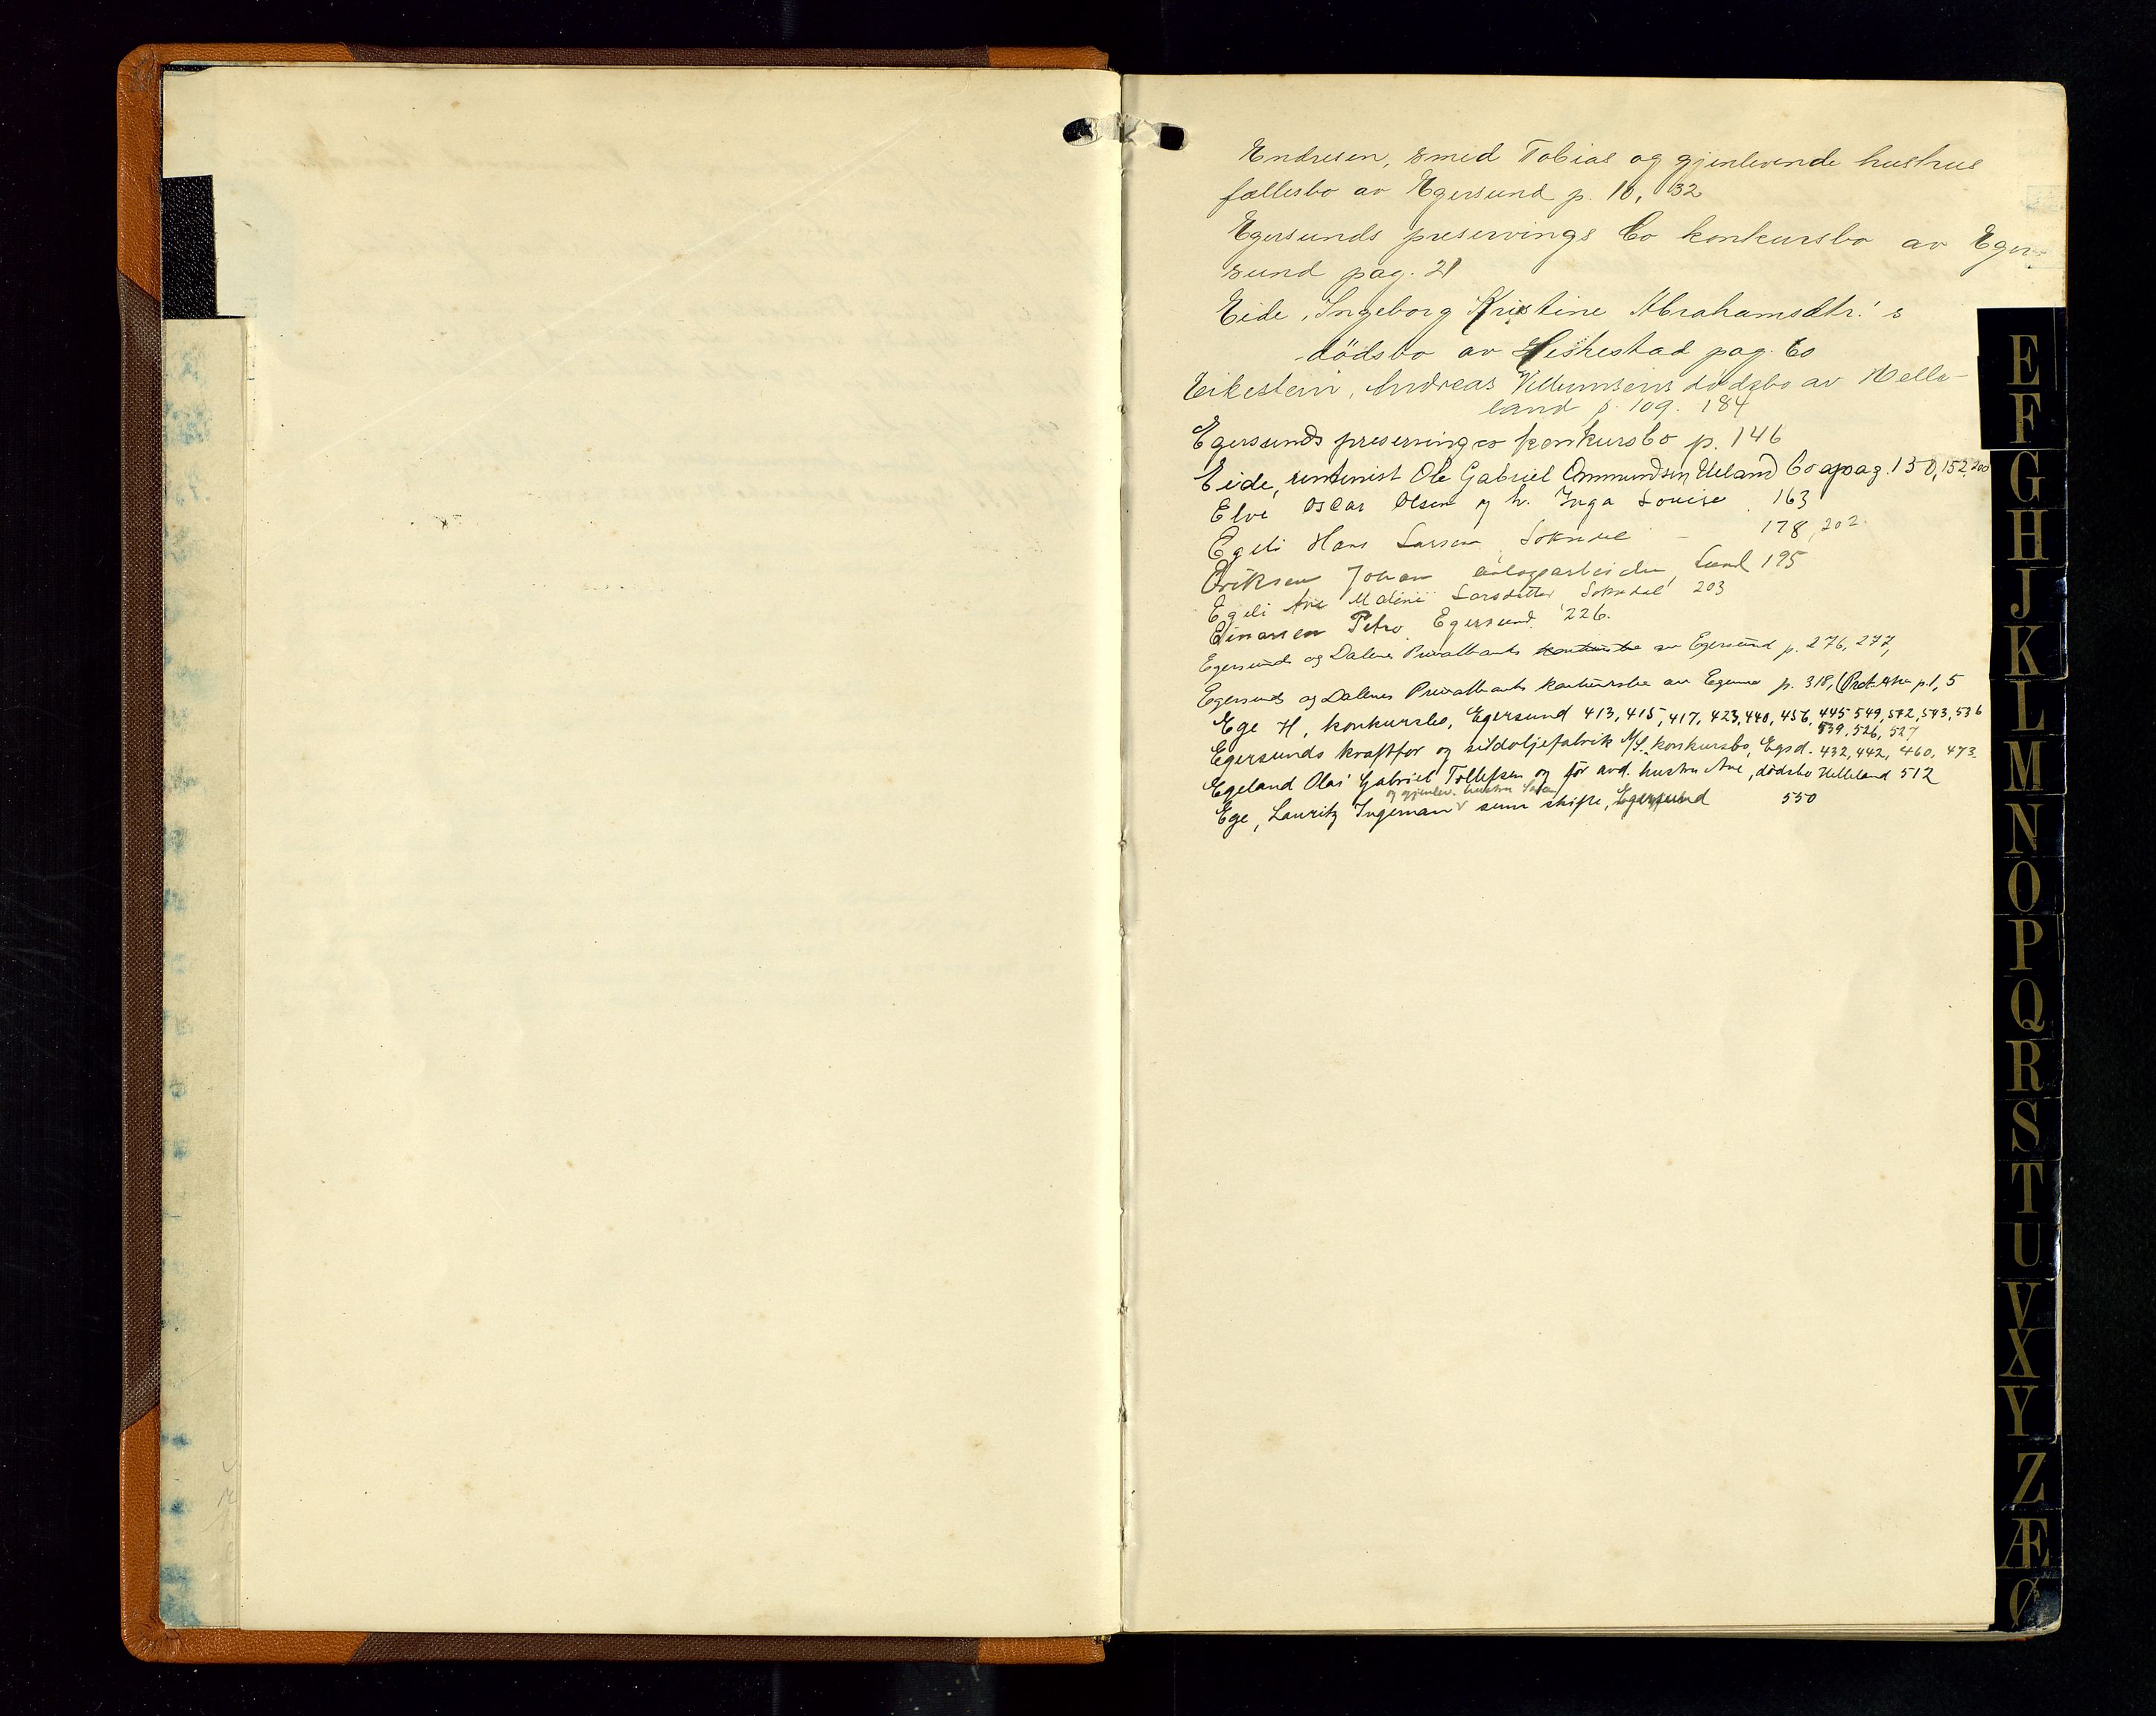 Endresen, smed Tobias og gjenlevende hustrus
fællesbo av Egersund p. 10, 32
Egersunds preservings Co konkursbo av Eger-
sund pag. 21
Eide, Ingeborg Kristine Abrahamsdtr.'s
dödsbo av Heskestad pag. 60
Eikestein, Andreas Villumsens dödsbo av Helle-
land p. 109. 184
Egersunds preserving co konkursbo p. 146
Eide, rentenist Ole Gabriel Ommundsen Ueland pag. 150, 152, 200
Elve Oscar Olsen og h. Inga Louise 163
Egeli Hans Larsen, Sokndal - 178, 202.
Eriksen Johan anlegsarbeider, Lund 195
Egeli Ane Maline Larsdatter Sokndal 203
Einarsen Petro. Egersund. 226.
Egersunds og Dalenes Privatbanks av Egersund p. 276, 277,
Egersunds og Dalenes Privatbanks konkursbo av p. 318, (Prot. p. 1, 5
Ege H, konkursbo, Egersund 413, 415, 417, 423, 440, 456, 445 549, 572, 543, 536
539, 526, 527
Egersunds kraftfor og sildoljefabrik A/S. konkursbo, Egsd. 432, 442, 460, 473.
Egeland Olai Gabriel Tollefsen og før avd. hustru Ane, dødsbo Helleland 512
og gjenlev. hustru
Ege, Lauritz Ingeman skifte, Egersund 550
E
F
G
H
J
K
L
M
N
O
P
Q
R
S
T
U
V
X
Y
Z
Æ
Ø